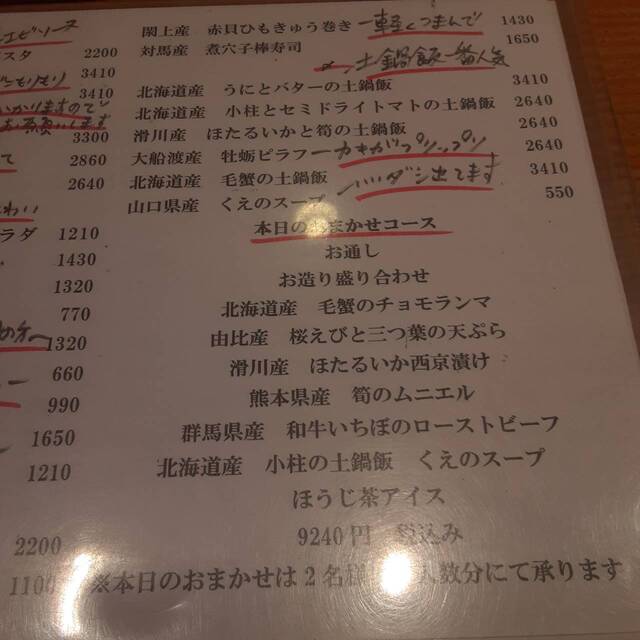 エビソース
閖上産 赤貝ひもきゅう巻き 軽くつまんで 1430
スタ 2200
対馬産 煮穴子棒寿司 1650
土鍋飯一番人気
3410
北海道産 うにとバターの土鍋飯 3410
かかりますので
お願いします
北海道産 小柱とセミドライトマトの土鍋飯 2640
3300
滑川産 ほたるいかと筍の土鍋飯 2640
て 2860
大船渡産 牡蛎ピラフ カキがプリップリ 2640
2640
北海道産 毛蟹の土鍋飯 いいダシ出てます 3410
山口県産 くえのスープ 550
本日のおまかせコース
ラダ 1210
お通し
1430
お造り盛り合わせ
1320
北海道産 毛蟹のチョモランマ
770
由比産 桜えびと三つ葉の天ぷら
1320
滑川産 ほたるいか西京漬け
660
熊本県産 筍のムニエル
990
群馬県産 和牛いちぼのローストビーフ
1650
北海道産 小柱の土鍋飯 くえのスープ
1210
ほうじ茶アイス
9240円 税込み
2200
1100
※本日のおまかせは2名様 人数分にて承ります